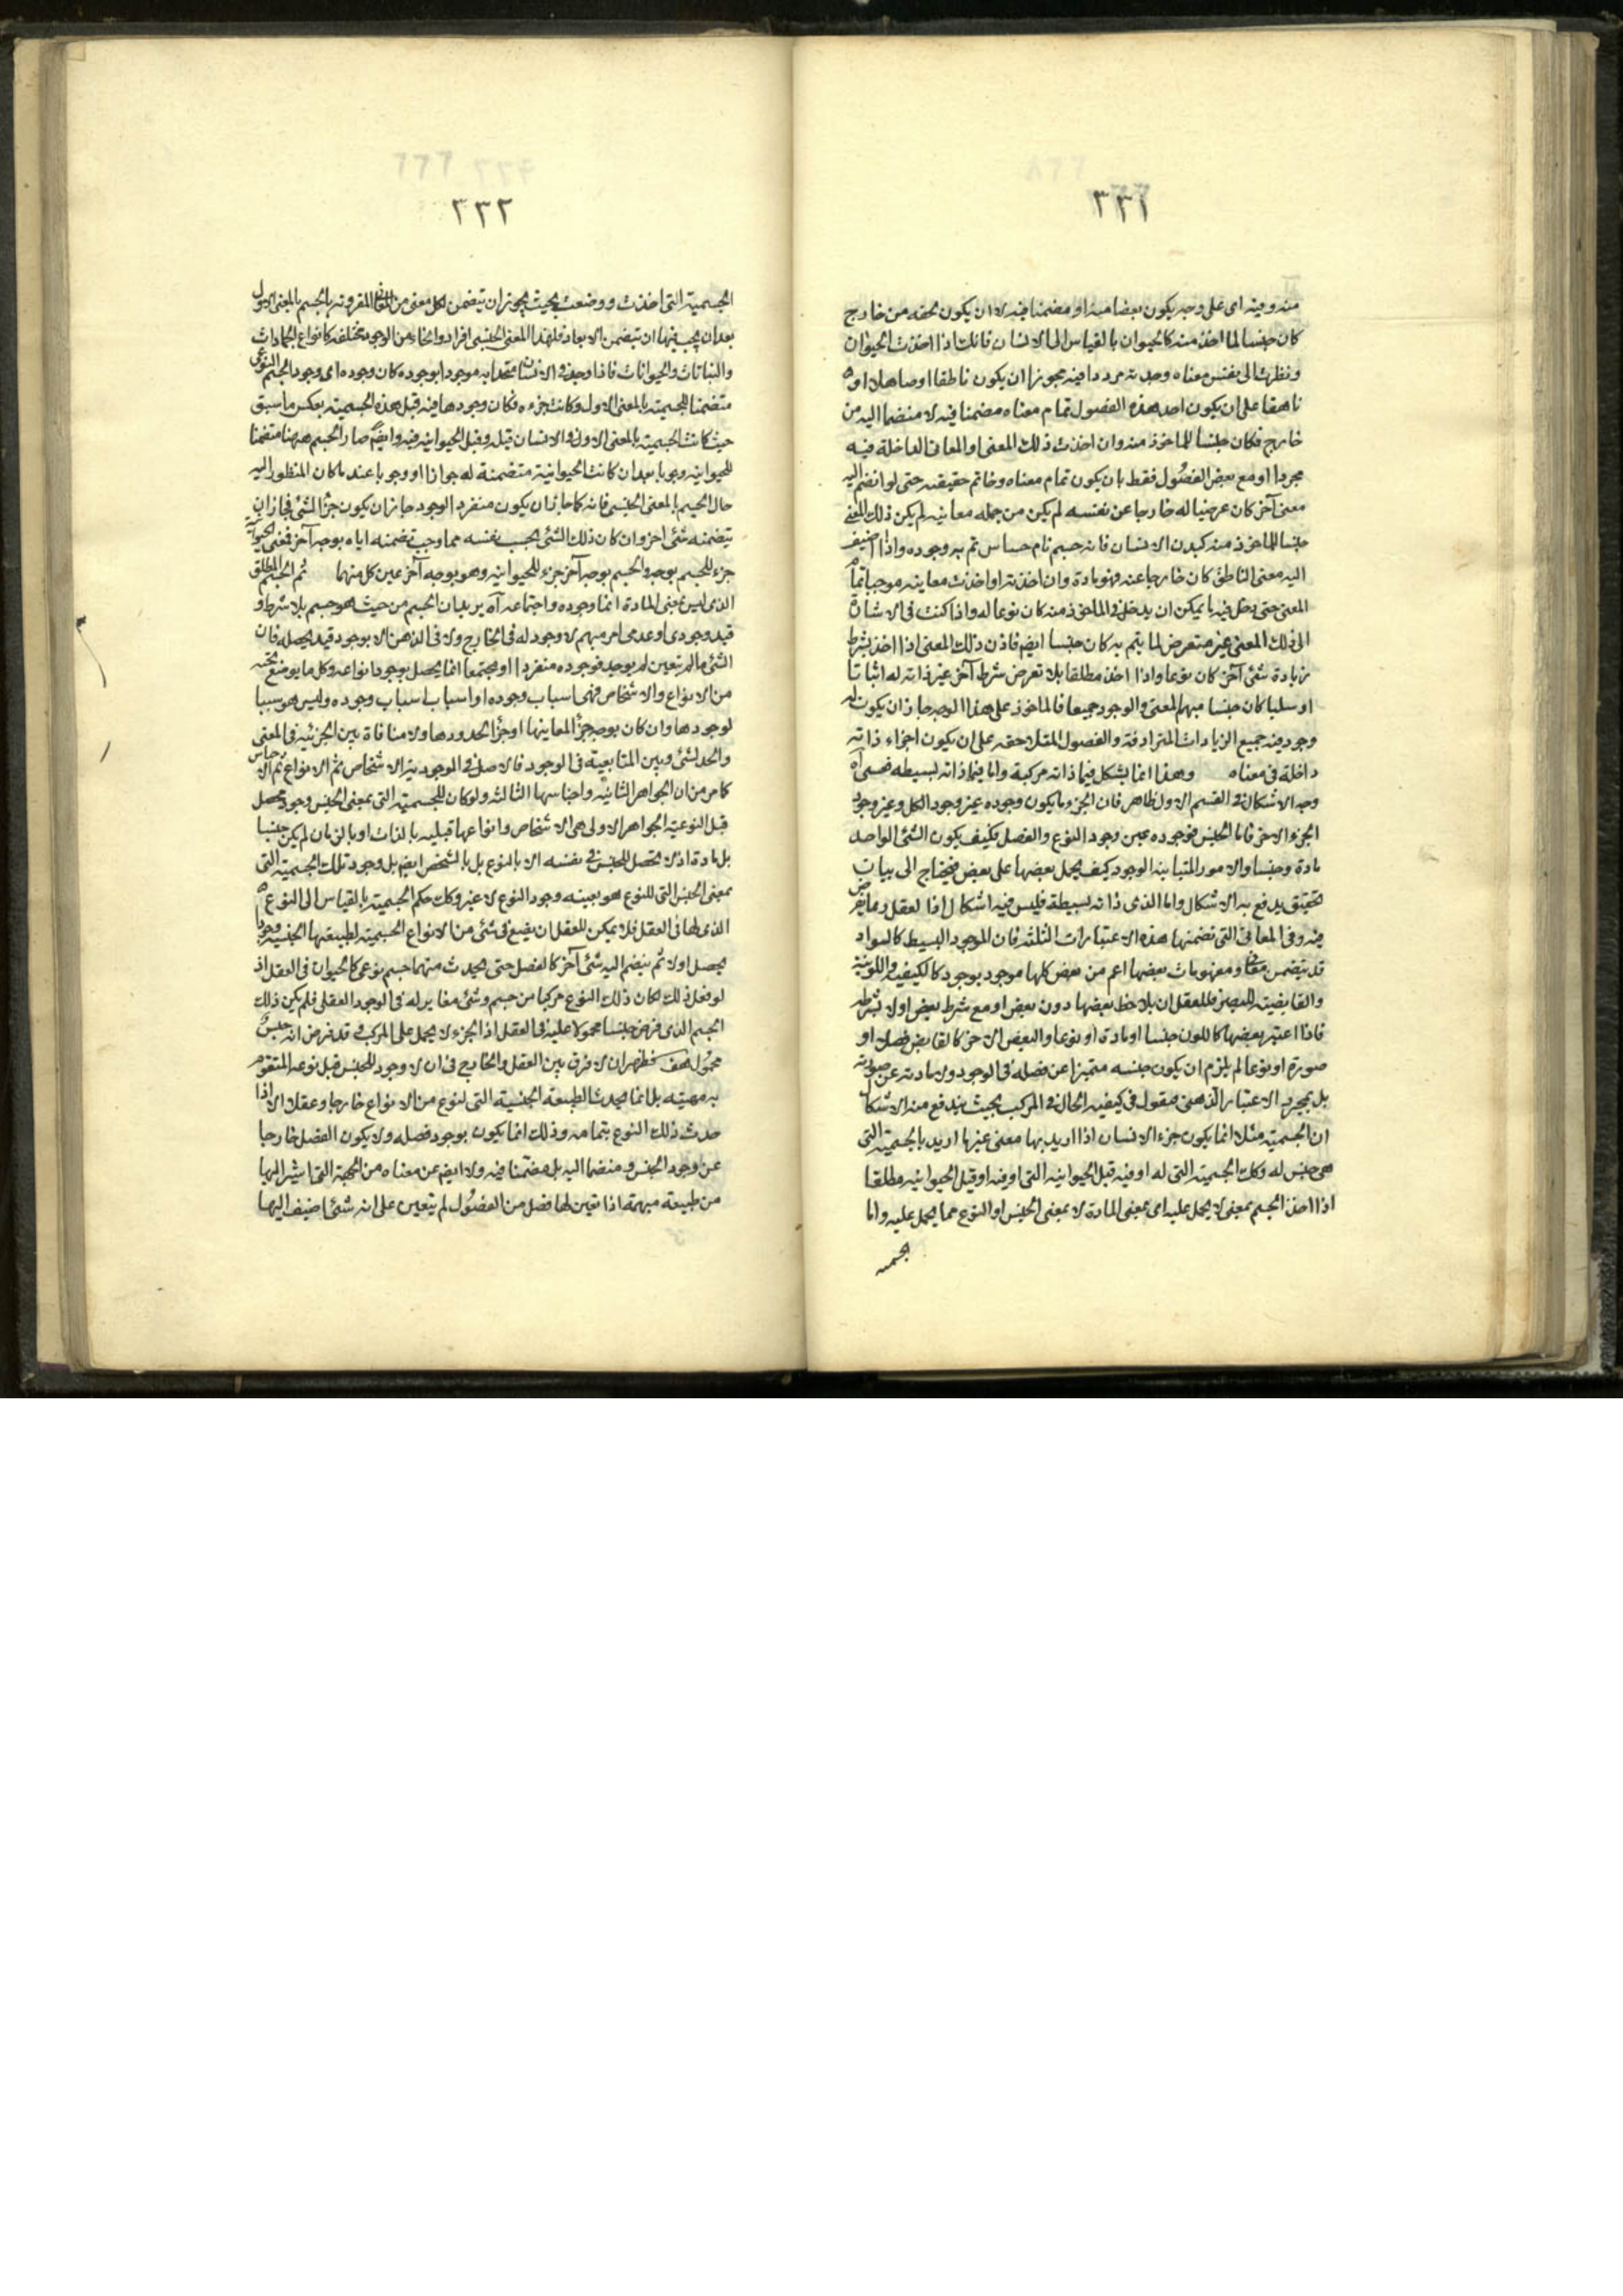 ٣٣١
منه وفيه اى على وجه يكون بعضا منه او مضمنا فيه لا ان يكون لحقه من خارج
كان جنسا لما اخذ منه كالحيوان بالقياس الى الانسان فانك اذا اخذت الحيوان
ونظرت الى نفس معناه وحدته مرددا فيه مجوزا ان يكون ناطقا او صاهلا او
ناهقا على ان يكون احد هذه الفصول تمام معناه مضمنا فيه لا منضما اليه من
خارج فكان جنسا للماخوذ منه وان اخذت ذلك المعنى والمعانى الداخلة فيه
مجردا او مع بعض الفصول فقط بان يكون تمام معناه وخاتم حقيقته حتى لو انضم اليه
معنى آخر كان عرضيا له خارجا عن نفسه لم يكن من جمله معانيه لم يكن ذلك المعنى
جنسا للماخوذ منه كبدن الانسان فانه جسم نام حساس تم به وجوده واذا اضيف
اليه معنى الناطق كان خارجا عنه فهو مادة وان اخذته او اخذت معاينه موجبا تمام
المعنى حتى دخل فيه ما يمكن ان يدخل فى الماخوذ منه كان نوعا له واذا كنت فى الاشارة
الى ذلك المعنى غير متعرض لما يتم به كان جنسا ايضم فاذن ذلك المعنى اذا اخذ بشرط
زيادة شئ آخر كان نوعا واذا اخذ مطلقا بلا تعرض شرط آخر غير ذاته له اثباتا
او سلبا كان جنسا مبهم المعنى والوجود جميعا فالماخوذ على هذا الوجه جاز ان يكون له
وجود فيه جميع الزيادات المترادفة والفصول المتلاحقه على ان يكون اجزاء ذاته
داخلة فى معناه وهذا انما يشكل فيما ذاته مركبة واما فيما ذاته بسيطه فعسى آه
وجه الاشكال فى القسم الاول ظاهر فان الجزء ما يكون وجوده غير وجود الكل وغير وجود
الجزء الاخر فاما الجنس فوجوده بعين وجود النوع والفصل فكيف يكون الشئ الواحد
مادة وجنسا والامور المتباينه الوجود كيف يحمل بعضها على بعض فيحتاج الى بيان
تحقيق يدفع به الاشكال واما الذى ذاته بسيطة فليس فيه اشكال اذا لعقل ربما يفرض
فيه وفى المعانى التى تضمنها هذه الاعتبارات الثلثه فان الموجود البسيط كالسواد
قد يتضمن معانى ومفهومات بعضها اعم من بعض كلها موجود بوجود كالكيفيه واللونية
والقابضيه للبصر فللعقل ان يلاحظ بعضها دون بعض او مع شرط بعض او لا بشرطه
فاذا اعتبر بعضها كاللون جنسا او مادة او نوعا والبعض الاخر كالقابض فصلا او
صورة او نوعا لم يلزم ان يكون جنسه متميزا عن فصله فى الوجود ولا مادته عن صورته
بل بمجرد الاعتبار الذهنى فنقول فى كيفيه الحال فى المركب بحيث يندفع منه الاشكال
ان الجسمية مثلا انما يكون جزء الانسان اذا اريد بها معنى غيرها اريد بالجسمية التى
هى جنس له وكك الجسمية التى له او فيه قبل الحيوانيه التى او فيه او قبل الحيوانيه مطلقا
اذا اخذ الجسم بمعنى لا يحمل عليه اى بمعنى المادة لا بمعنى الجنس او النوع مما يحمل عليه واما
الجسمية
٣٣٢
الجسمية التى اخذت ووضعت بحيث يجوز ان يتضمن لكل معنى من المعانى المقرونه بالجسم بالمعنى الاول
بعد ان يجب فيها ان تتضمن الابعاد فلهذا المعنى الجنسى افراد وانحاء من الوجود مختلفه كانواع الجمادات
والنباتات والحيوانات فاذا وجد فى الانسان متحدا به موجودا بوجوده كان وجوده اى وجود الجسم النوعى
متضمنا للجسميه بالمعنى الاول وكانت جزءه فكان وجودها فيه قبل هذه الجسميه بعكس ما سبق
حيث كانت الجسميه بالمعنى الاول فى الانسان قبله وقبل الحيوانيه فيه وايضم صار الجسم ههنا متضمنا
للحيوانيه وجوبا بعد ان كانت الحيوانية متضمنة له جوازا او وجوبا عند ما كان المنظور اليه
حال الجسم بالمعنى الجنسى فانه كما جاز ان يكون منفرد الوجود جاز ان يكون جزء الشئ فجاز ان
يتضمنه شئ اخر وان كان ذلك الشئ بحسب نفسه مما وجب تضمنه اياه بوجه آخر فمعنى الحيوانية
جزء للجسم بوجه والجسم بوجه آخر جزء للحيوانيه وهو بوجه آخر عين كل منهما ثم الجسم المطلق
الذى ليس بمعنى المادة انما وجوده واجتماعه آه يريد ان الجسم من حيث هو جسم بلا شرط او
قيد وجودى او عدمى امر مبهم لا وجود له فى الخارج ولا فى الذهن الا بوجود قيد يحصله فان
الشئ ما لم يتعين لم يوجد فوجوده منفردا او مجتمعا انما يحصل بوجود انواعه وكل ما يوضع تحته
من الانواع والاشخاص فهى اسباب وجوده او اسباب اسباب وجوده وليس هو سببا
لوجودها وان كان بوجه جزأ لمعاينها او جزأ لحدودها ولا منافاة بين الجزئيه فى المعنى
والحد لشئ وبين المتابعية فى الوجود فالاصل فى الموجوديه الاشخاص ثم الانواع ثم الاجناس
كما مر من ان الجواهر الثانيه واجناسها الثالثه ولو كان للجسمية التى بمعنى الجنس وجود محصل
قبل النوعيه الجواهر الاولى هى الاشخاص وانواعها قبليه بالذات او بالزمان لم يكن جنسا
بل مادة اذ لا تحصل للجنس فى نفسه الا بالنوع بل بالشخص ايضم بل وجود تلك الجسمية التى
بمعنى الجنس التى للنوع هو بعينه وجود النوع لا غير وكك حكم الجسمية بالقياس الى النوع
الذى لها فى العقل فلا يمكن للعقل ان يضع فى شئ من الانواع الجسميه لطبيعتها الجنسيه وجودا
يحصل اولا ثم ينضم اليه شئ آخر كالفصل حتى يحدث منهما جسم نوعى كالحيوان فى العقل اذ
لو فعل ذلك لكان ذلك النوع مركبا من جسم وشئ مغاير له فى الوجود العقلى فلم يكن ذلك
الجسم الذى فرض جنسا محمولا عليه فى العقل اذ الجزء لا يحمل على المركب وقد فرض انه جنس
محمول هف فظهر ان لا فرق بين العقل والخارج فى ان لا وجود للجنس قبل نوعه المتقوم
به مهيته بل انما يحدث الطبيعة الجنسية التى لنوع من الانواع خارجا وعقلا الا اذا
حدث ذلك النوع بتمامه وذلك انما يكون بوجود فصله ولا يكون الفصل خارجا
عن وجود الجنس و منضما اليه بل مضمنا فيه ولا ايضم عن معناه من الجهة التى اشير اليها
من طبيعة مبهمة اذا تعين لها فصل من الفصول لم يتعين على انه شئ اضيف اليها